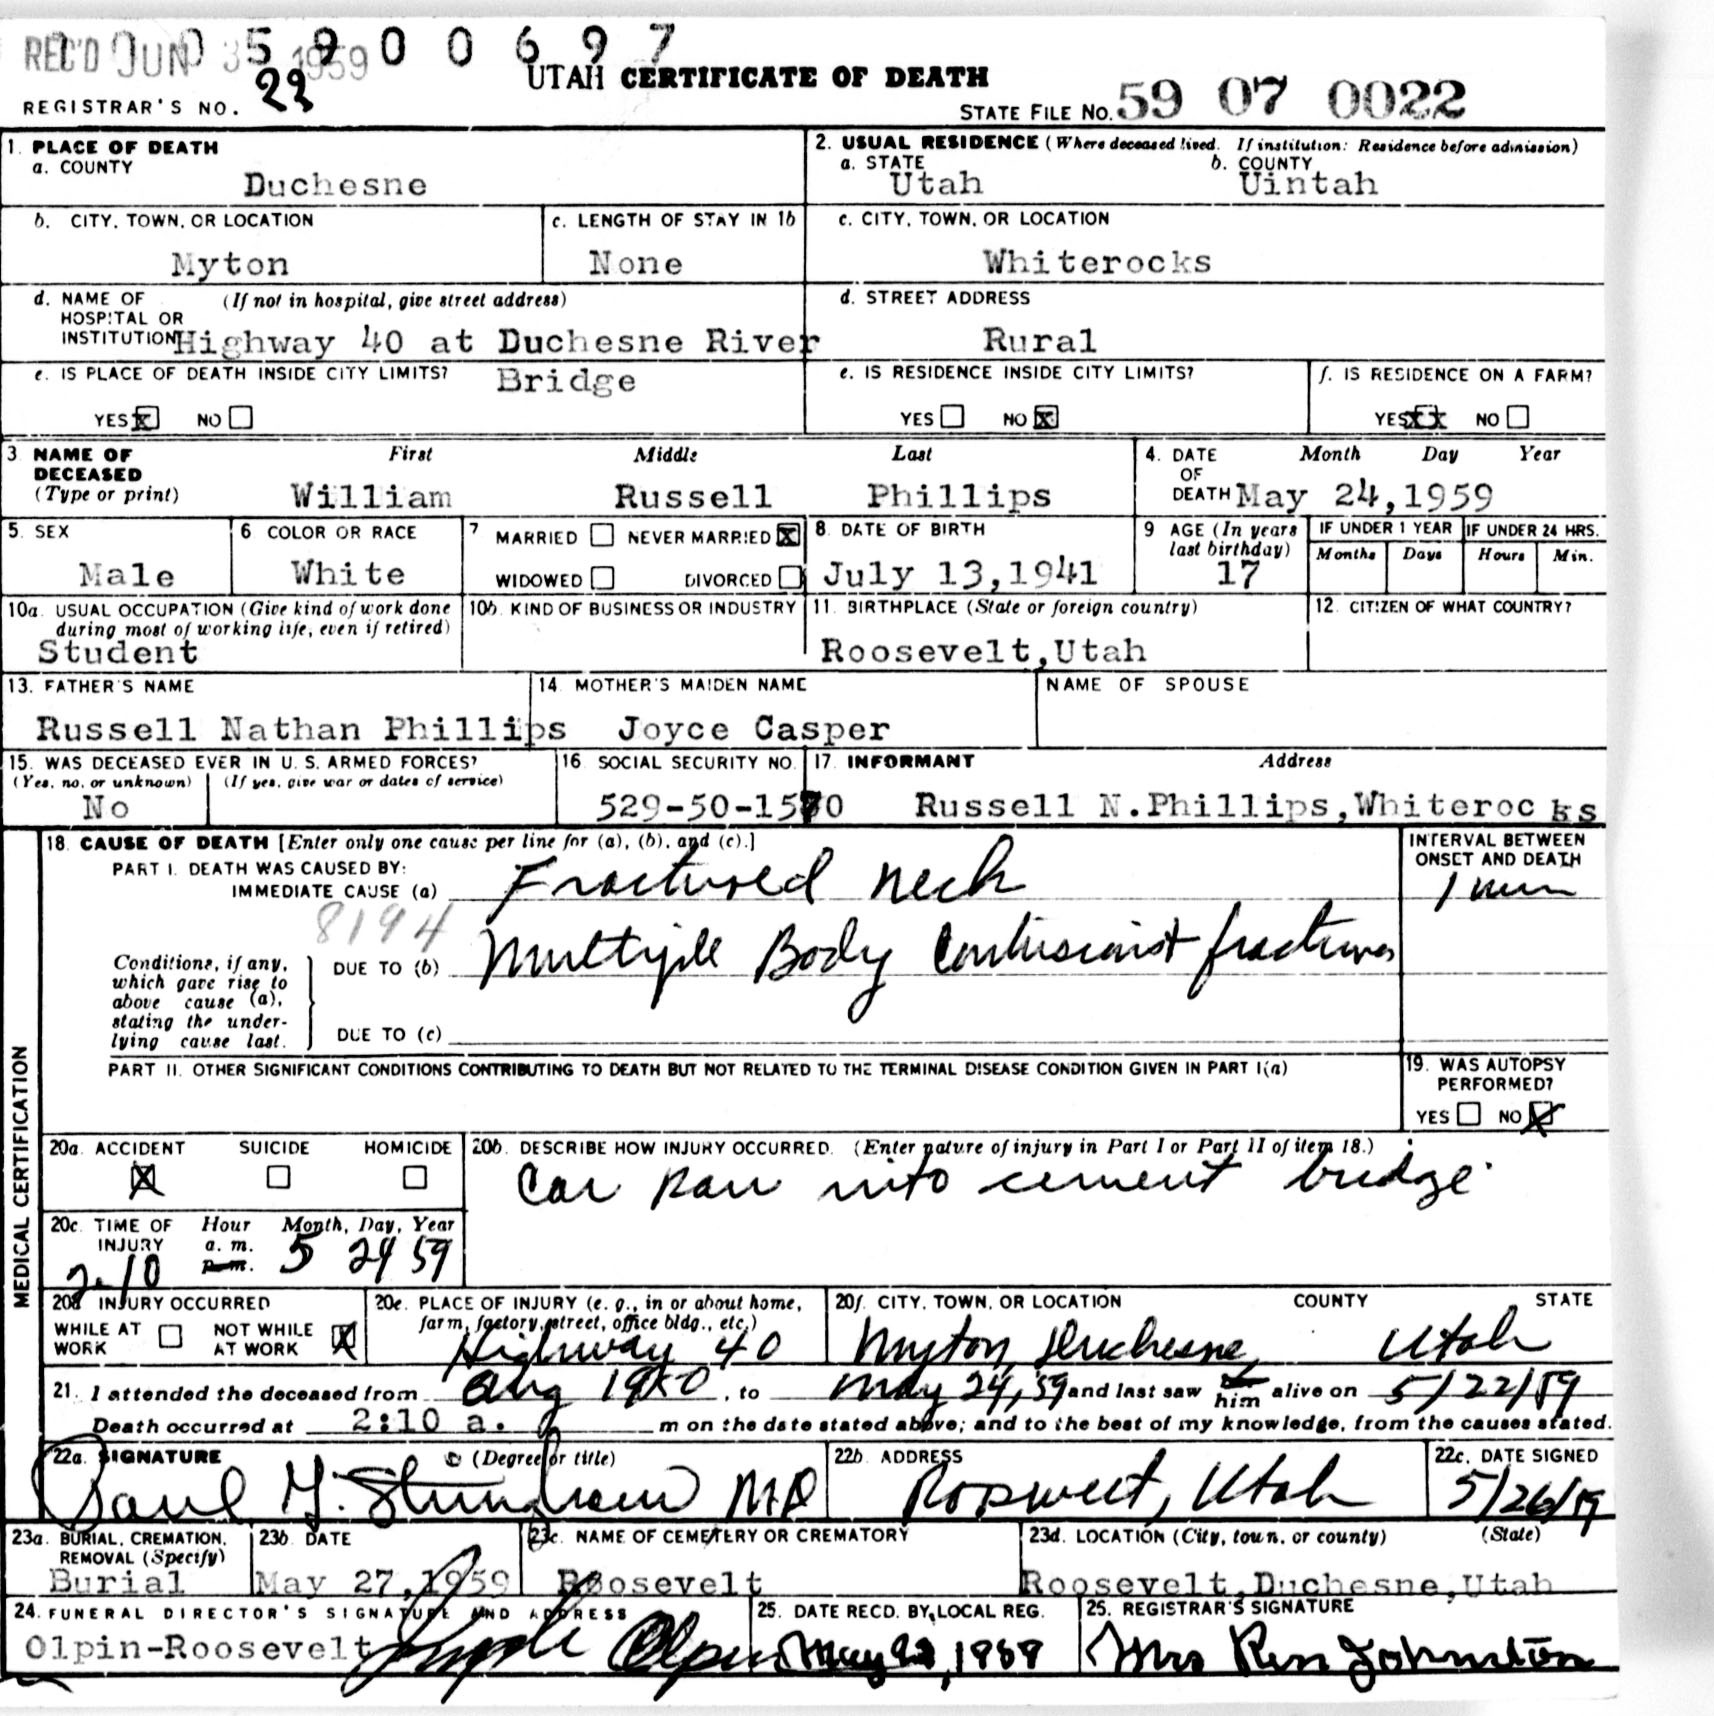 REC'D JUN 3 1959
0 0 5 9 0 0 6 9 7
UTAH CERTIFICATE OF DEATH
REGISTRAR'S NO. 22
STATE FILE NO. 59 07 0022
1. PLACE OF DEATH
a. COUNTY
Duchesne
2. USUAL RESIDENCE (Where deceased lived. If institution: Residence before admission)
a. STATE b. COUNTY
Utah Uintah
b. CITY, TOWN, OR LOCATION
Myton
c. LENGTH OF STAY IN 1b
None
c. CITY, TOWN, OR LOCATION
Whiterocks
d. NAME OF (If not in hospital, give street address)
HOSPITAL OR
INSTITUTION Highway 40 at Duchesne River
Bridge
d. STREET ADDRESS
Rural
e. IS PLACE OF DEATH INSIDE CITY LIMITS?
YES X NO
e. IS RESIDENCE INSIDE CITY LIMITS?
YES NO X
f. IS RESIDENCE ON A FARM?
YES XX NO
3 NAME OF DECEASED (Type or print)
First Middle Last
William Russell Phillips
4. DATE OF DEATH Month Day Year
May 24,1959
5. SEX
Male
6 COLOR OR RACE
White
7 MARRIED NEVER MARRIED X
WIDOWED DIVORCED
8. DATE OF BIRTH
July 13,1941
9 AGE (In years last birthday)
17
IF UNDER 1 YEAR IF UNDER 24 HRS.
Months Days Hours Min.
10a. USUAL OCCUPATION (Give kind of work done
during most of working life, even if retired)
Student
10b. KIND OF BUSINESS OR INDUSTRY
11. BIRTHPLACE (State or foreign country)
Roosevelt,Utah
12. CITIZEN OF WHAT COUNTRY?
13. FATHER'S NAME
Russell Nathan Phillips
14. MOTHER'S MAIDEN NAME
Joyce Casper
NAME OF SPOUSE
15. WAS DECEASED EVER IN U. S. ARMED FORCES?
(Yes, no, or unknown) (If yes, give war or dates of service)
No
16. SOCIAL SECURITY NO.
529-50-1570
17. INFORMANT Address
Russell N.Phillips,Whiterocks
MEDICAL CERTIFICATION
18. CAUSE OF DEATH [Enter only one cause per line for (a), (b), and (c).]
PART I. DEATH WAS CAUSED BY:
IMMEDIATE CAUSE (a) Fractured neck
INTERVAL BETWEEN ONSET AND DEATH
1 min
8194
Conditions, if any,
which gave rise to
above cause (a),
stating the under-
lying cause last.
DUE TO (b) Multiple Body Contusions + fractures
DUE TO (c)
PART II. OTHER SIGNIFICANT CONDITIONS CONTRIBUTING TO DEATH BUT NOT RELATED TO THE TERMINAL DISEASE CONDITION GIVEN IN PART I(a)
19. WAS AUTOPSY PERFORMED?
YES NO X
20a. ACCIDENT SUICIDE HOMICIDE
X
20b. DESCRIBE HOW INJURY OCCURRED. (Enter nature of injury in Part I or Part II of item 18.)
Car ran into cement bridge.
20c. TIME OF INJURY Hour Month, Day, Year
a. m.
p. m.
2:10 5 24 59
20d INJURY OCCURRED
WHILE AT WORK NOT WHILE AT WORK X
20e. PLACE OF INJURY (e. g., in or about home,
farm, factory, street, office bldg., etc.)
Highway 40
20f. CITY, TOWN, OR LOCATION COUNTY STATE
Myton, Duchesne, Utah
21. I attended the deceased from Aug 1950, to May 24, 59 and last saw him alive on 5/22/59
Death occurred at 2:10 a. m on the date stated above; and to the best of my knowledge, from the causes stated.
22a. SIGNATURE (Degree or title)
Paul G. MD
22b. ADDRESS
Roosevelt, Utah
22c. DATE SIGNED
5/26/59
23a. BURIAL, CREMATION, REMOVAL (Specify)
Burial
23b. DATE
May 27,1959
23c. NAME OF CEMETERY OR CREMATORY
Roosevelt
23d. LOCATION (City, town, or county) (State)
Roosevelt,Duchesne,Utah
24. FUNERAL DIRECTOR'S SIGNATURE AND ADDRESS
Olpin-Roosevelt Olpin
25. DATE RECD. BY LOCAL REG.
May 1959
25. REGISTRAR'S SIGNATURE
Mrs Johnston